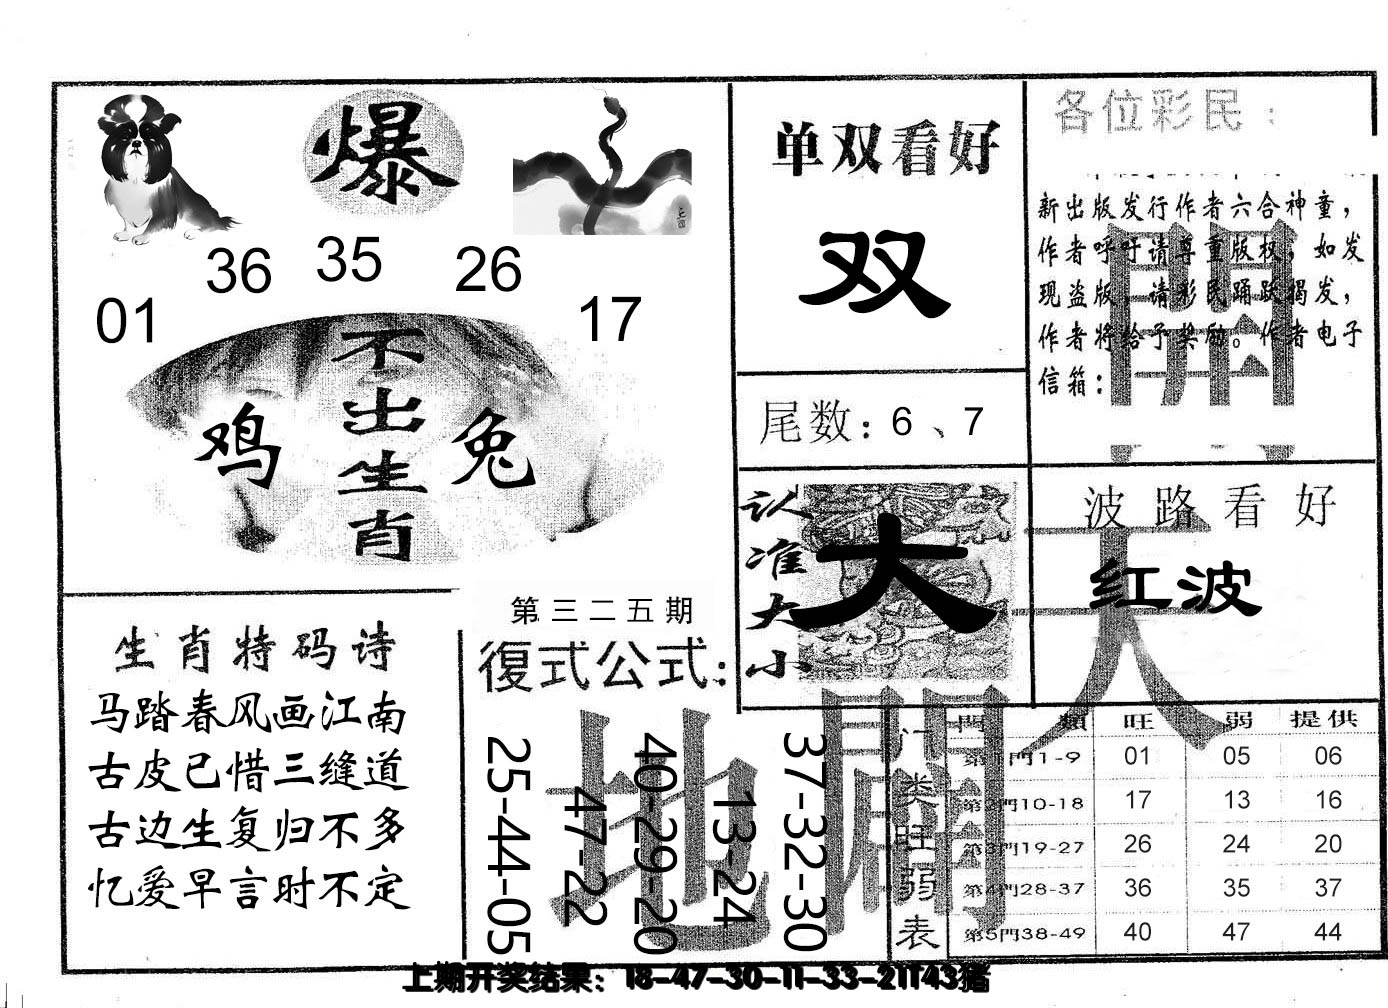 爆
36 35 26
01 17
不出生肖
鸡 兔
单双看好
双
尾数：6、7
各位彩民：
新出版发行作者六合神童，
作者呼吁请尊重版权，如发
现盗版，请彩民踊跃揭发，
作者将给予奖励。作者电子
信箱：
開
认准大小
大
波路看好
红波
天
生肖特码诗
马踏春风画江南
古皮已惜三缝道
古边生复归不多
忆爱早言时不定
第三二五期
復式公式：
25-44-05
47-22
40-29-20
13-24
37-32-30
地
開
门类旺弱表
門 類 旺 弱 提供
第1門1-9 01 05 06
第2門10-18 17 13 16
第3門19-27 26 24 20
第4門28-37 36 35 37
第5門38-49 40 47 44
上期开奖结果：18-47-30-11-33-21T43猪